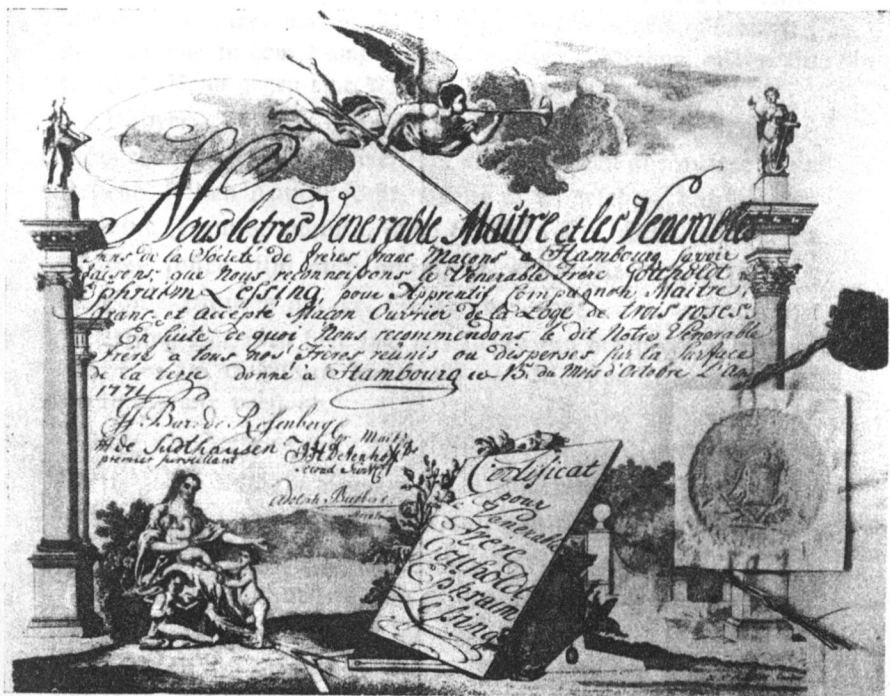 Nous le tres Venerable Maitre et les Venerables
de la Societé de freres franc Maçons a Hambourg savoir
faisons, que Nous reconnoissons le Venerable Frere Gotthold
Ephraim Lessing, pour Apprentif Compagnon, Maitre,
franc et accepté Macon Ouvrier de la Loge de trois roses.
En suite de quoi Nous recommendons le dit Notre Venerable
Frere a tous nos Freres reunis ou disperses sur la surface
de la terre donné à Hambourg ce 15. du Mois d'Octobre L'An
1771
Bar: de Rosenberg
de Sudthausen
premier surveillant
Second
Adolph
Certificat
pour
Venerable
Frere
Gotthold
Ephraim
Lessing